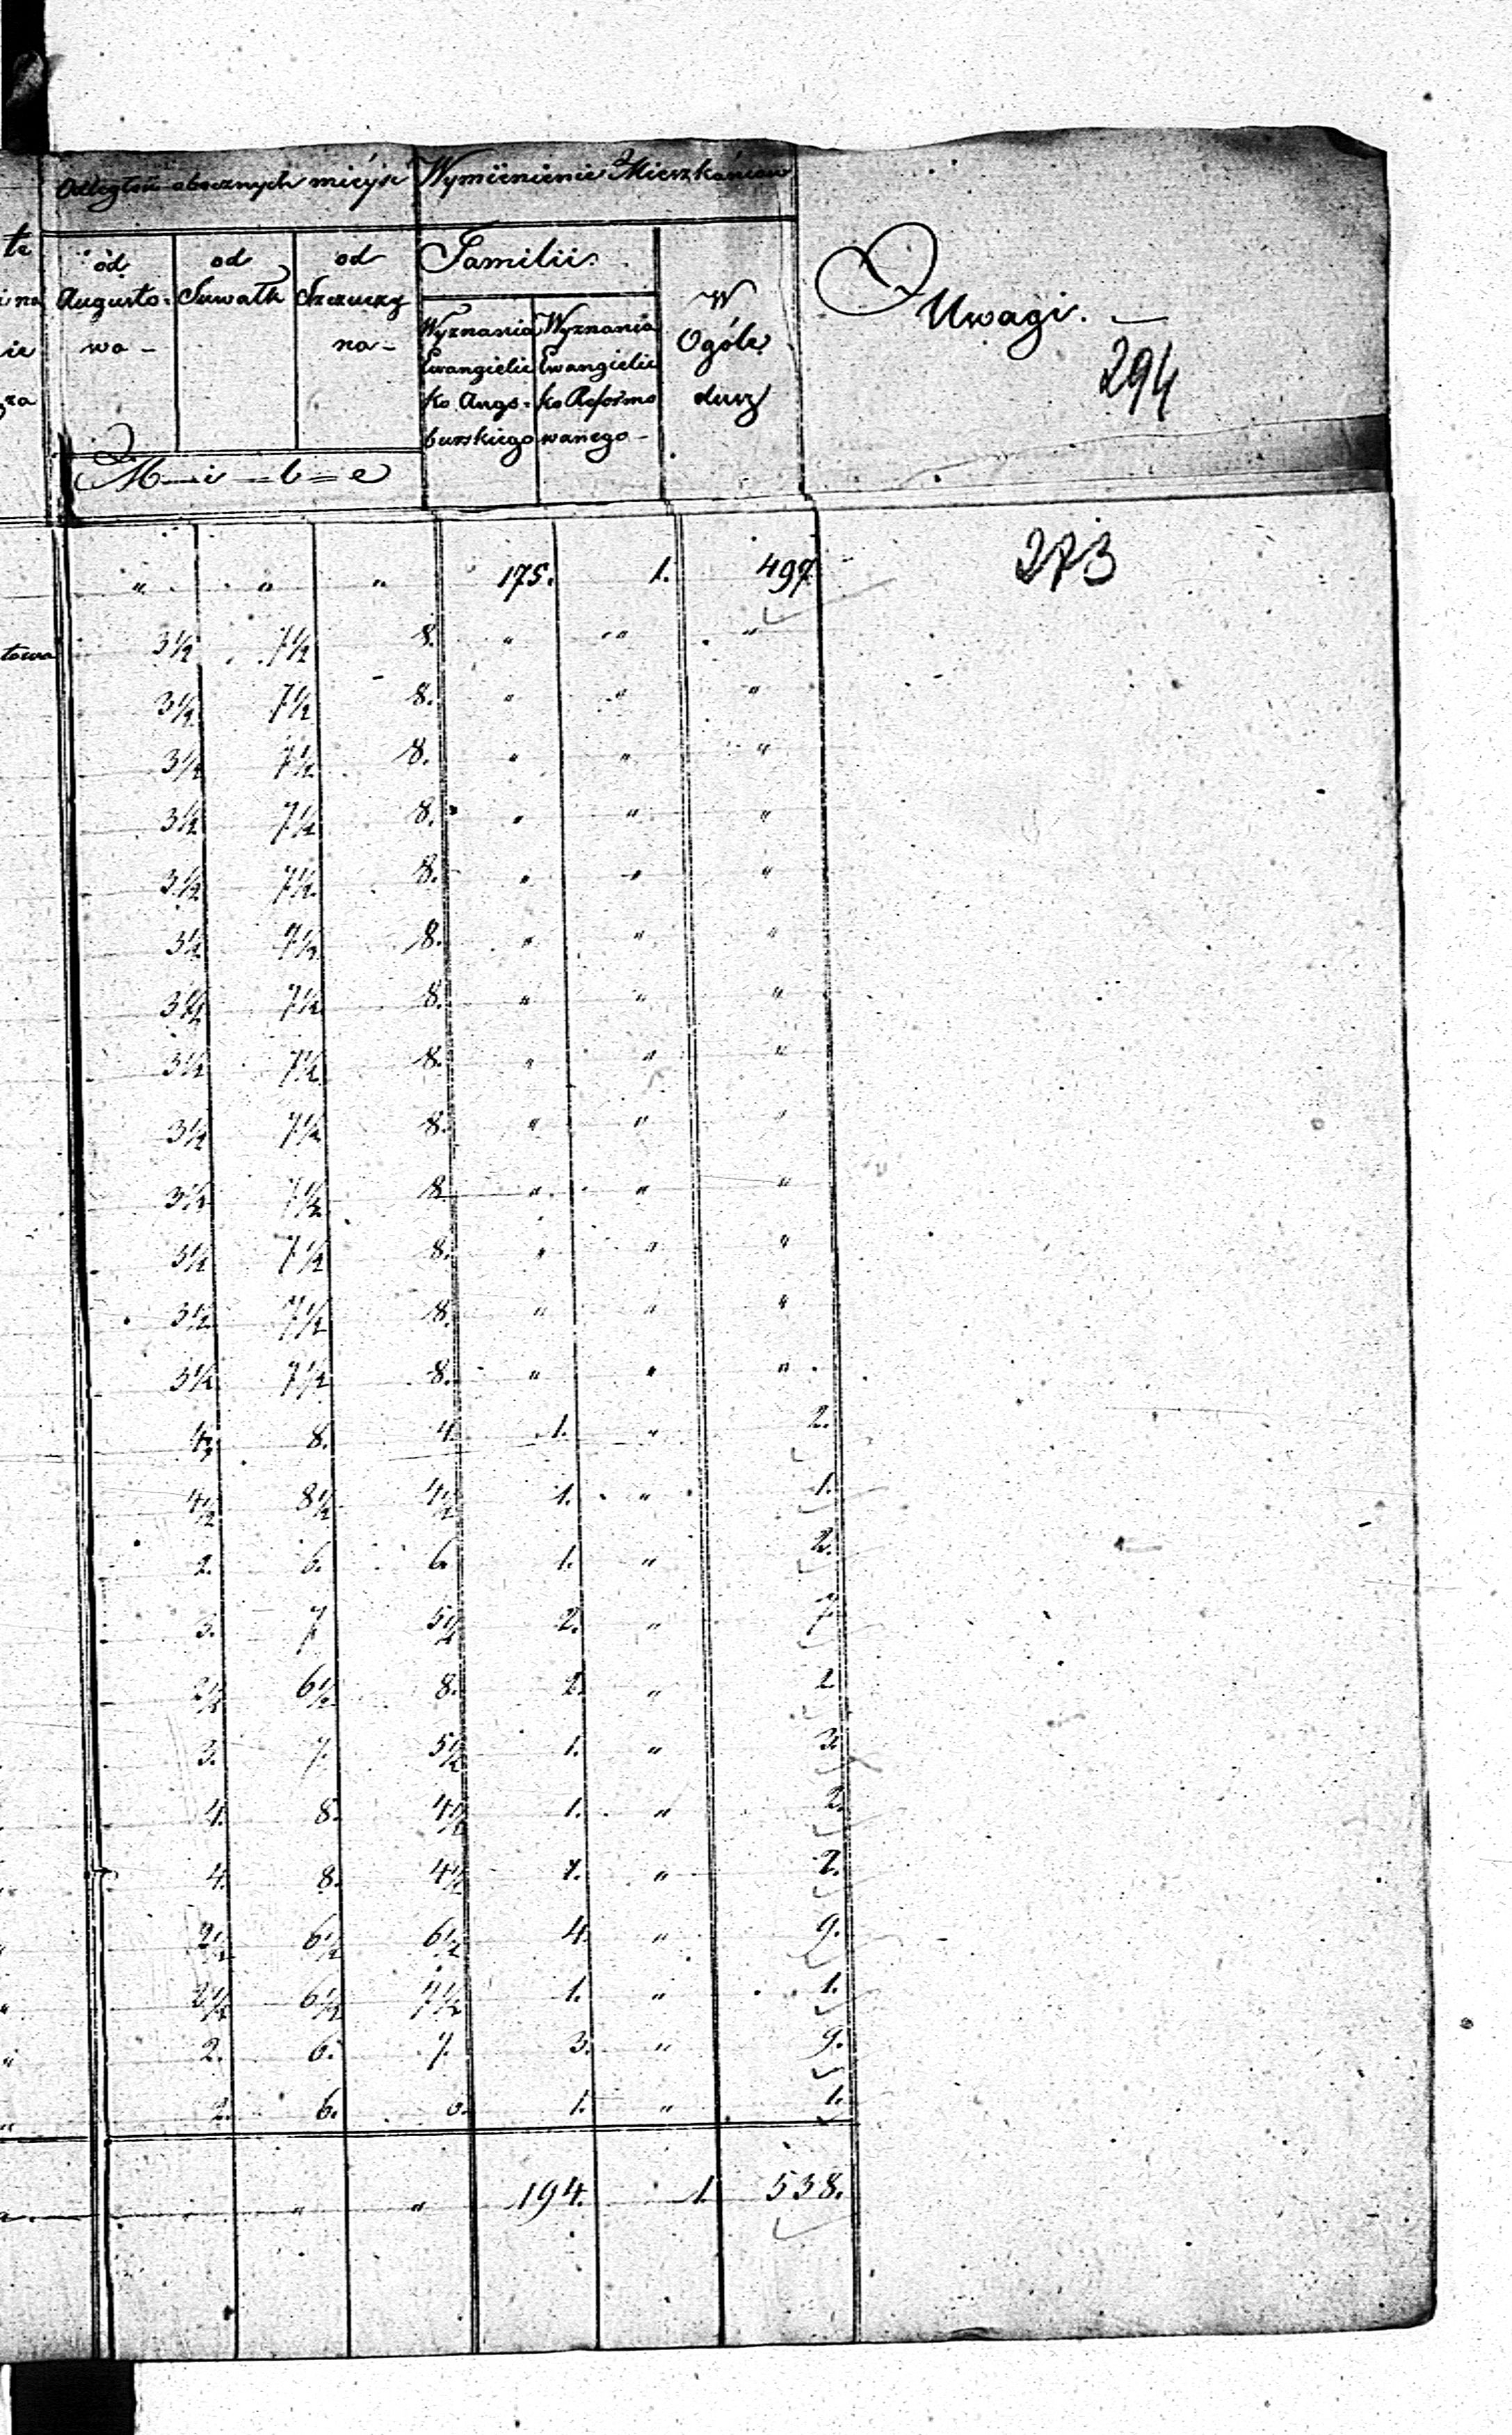 Odległość obocznych mieysc Wymienienie Mieszkańców
te od od od Familii Uwagi.
Augusto- Suwałk Szczuczy W
wa- na- Wyznania Wyznania Ogóle 294
ie Ewangielic Ewangielic
za ko Augs- ko Reformo dusz
burskiego wanego-
M-i-l-e
" " " 175. 1. 497. 273
3½ 7½ 8. " " "
3½ 7½ 8. " " "
3½ 7½ 8. " " "
3½ 7½ 8. " " "
3½ 7½ 8. " " "
3½ 7½ 8. " " "
3½ 7½ 8. " " "
3½ 7½ 8. " " "
3½ 7½ 8. " " "
3½ 7½ 8. " " "
3½ 7½ 8. " " "
3½ 7½ 8. " " "
3½ 7½ 8. " " "
4. 8. 4. 1. " 2.
4½ 8½ 4½ 1. " 1.
2. 6. 6. 1. " 2.
3. 7 5½ 2. " 7
2½ 6½ 8. " 2
3. 7. 5½ 1. " 3.
4. 8. 4½ 1. " 2.
4. 8. 4½ "
2½ 6½ 6½ 4. " 9.
2½ 6½ 7½ 1. " 1.
" 2. 6. 7. 3. " 9.
" 2. 6. 1. " 1.
" " 194. 1 538.